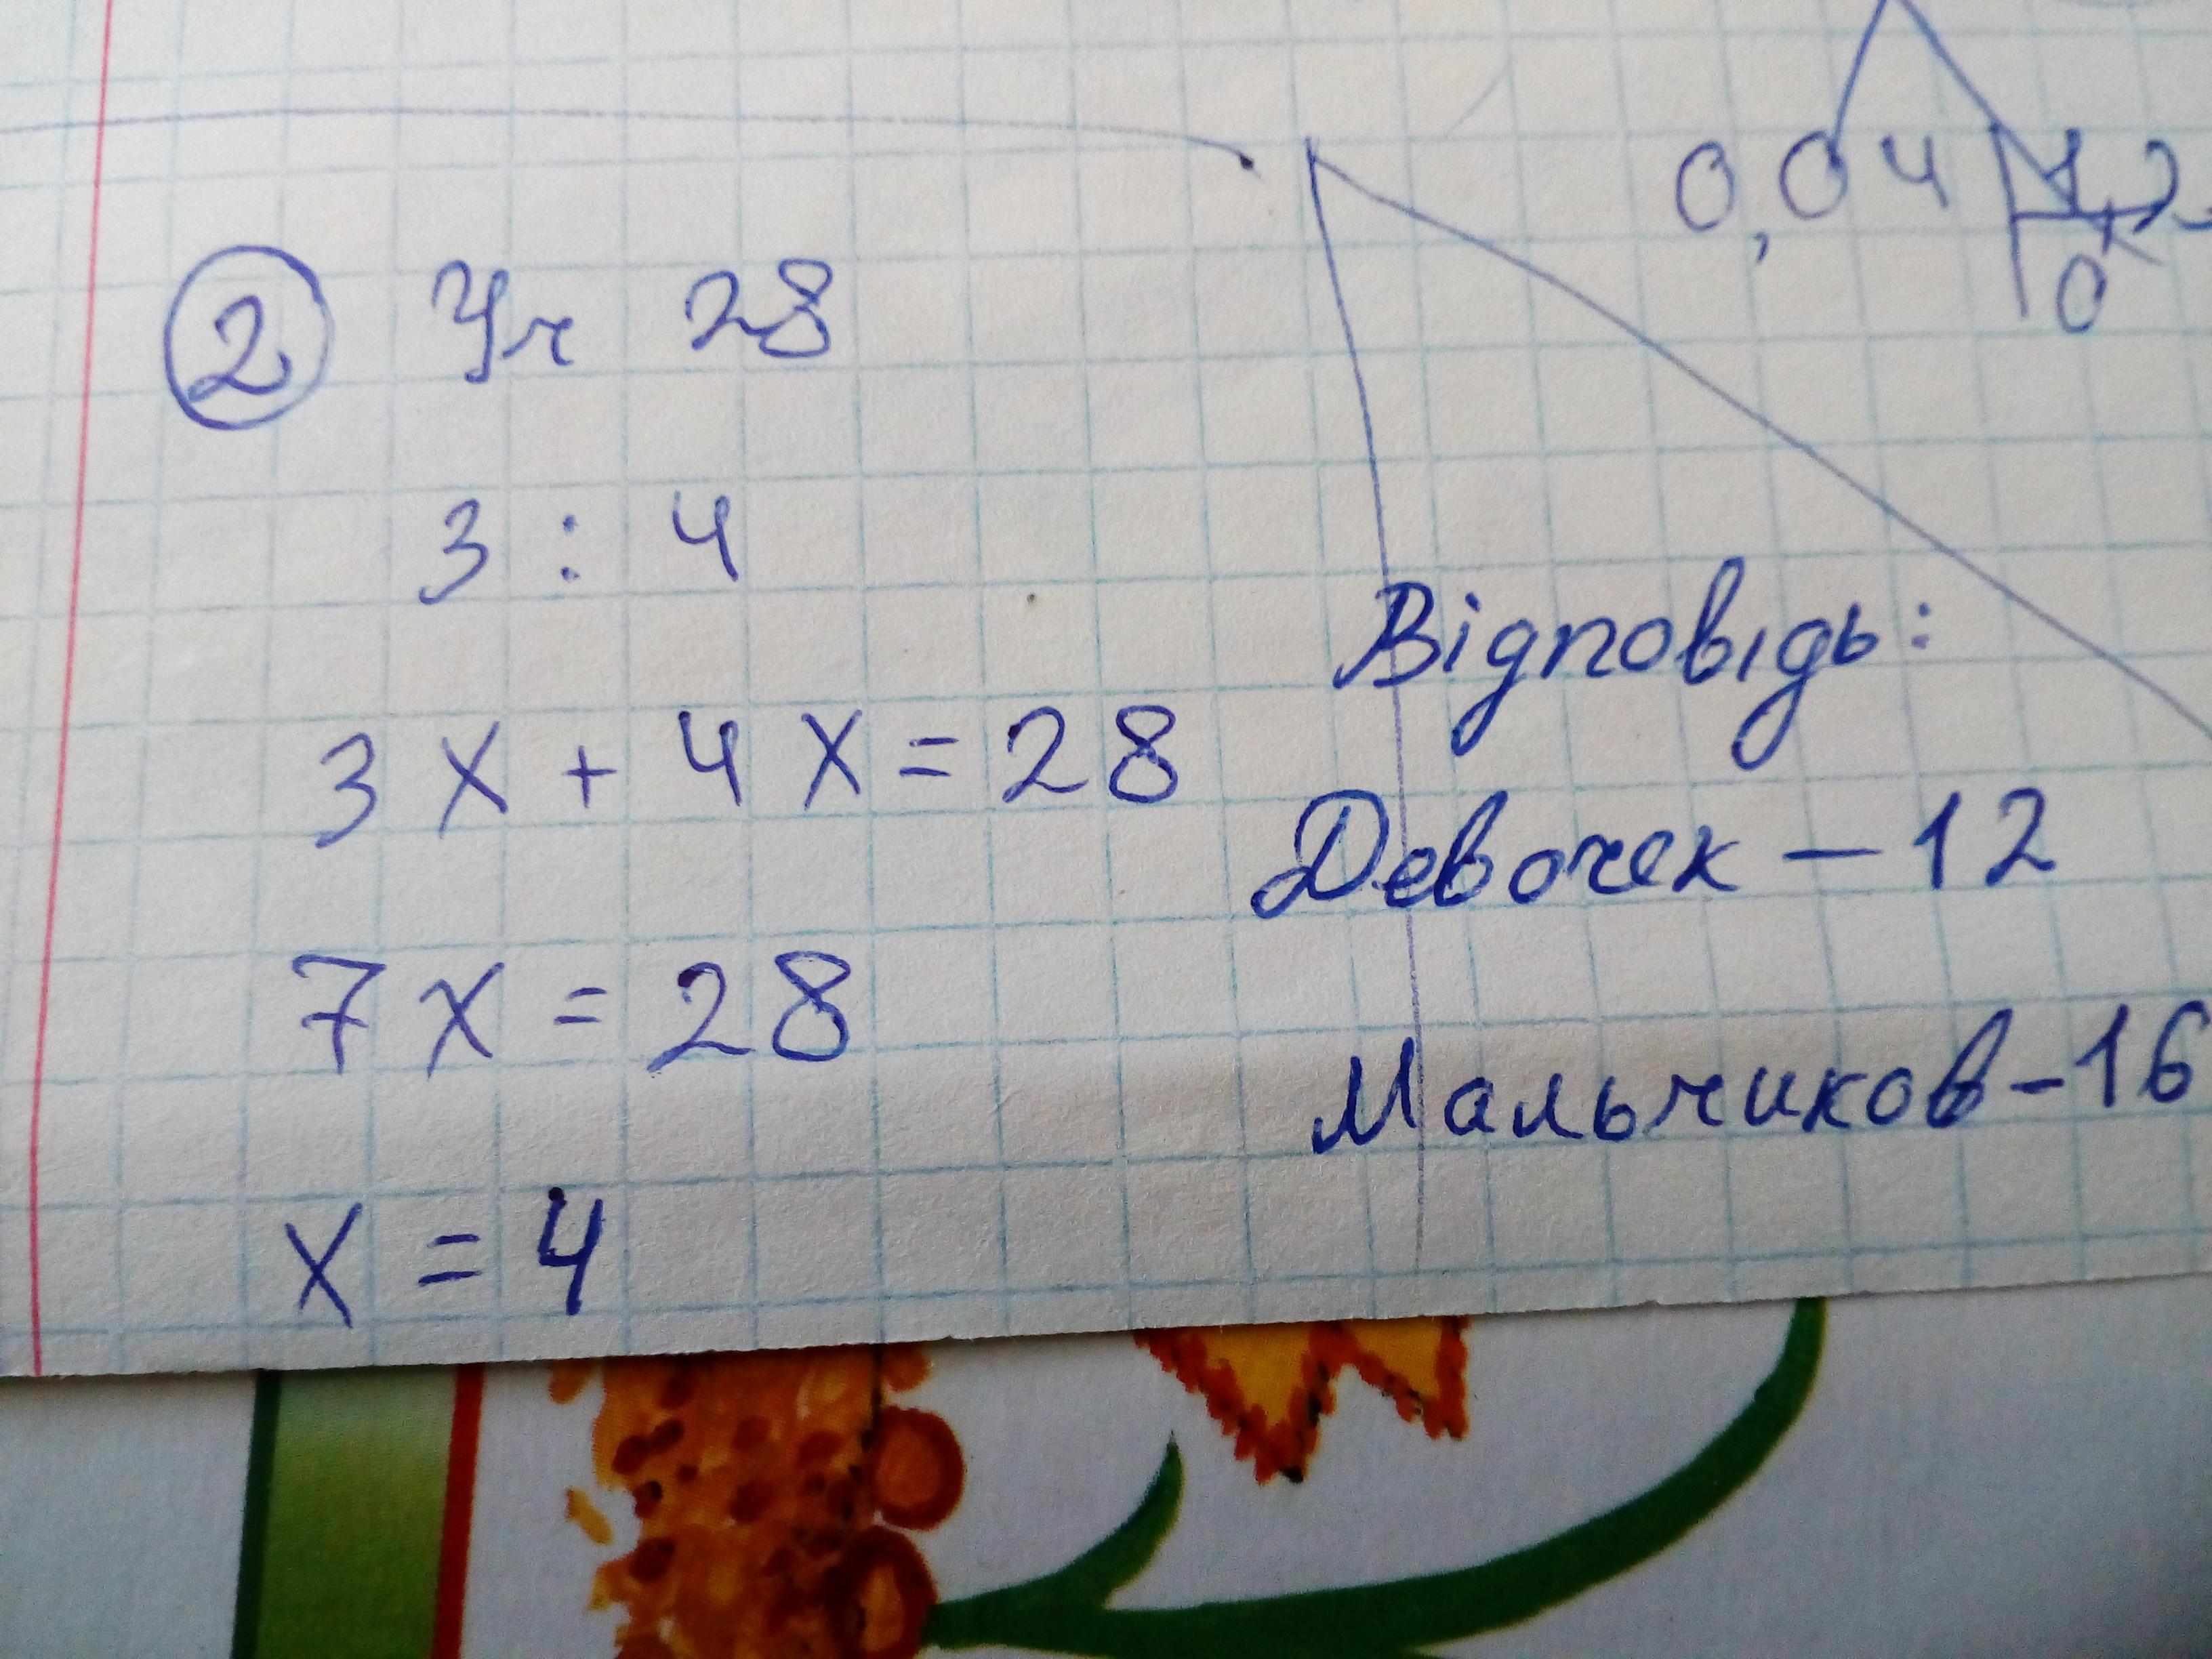 2 Уч 28
3 : 4
3x + 4x = 28
7x = 28
x = 4
0,04
0
Відповідь:
Девочек – 12
Мальчиков – 16